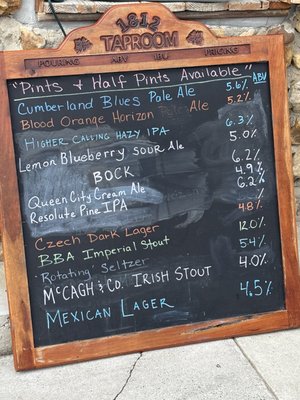 1812
TAPROOM
POURING ABV IBU PRICING
"Pints & Half Pints Available" ABV
Cumberland Blues Pale Ale 5.6%
Blood Orange Horizon Ale 5.2%
HIGHER CALLING HAZY IPA 6.3%
Lemon Blueberry SOUR Ale 5.0%
BOCK 6.2%
Queen City Cream Ale 4.9%
Resolute Pine IPA 6.2%
Czech Dark Lager 4.8%
BBA Imperial Stout 12.0%
"Rotating" Seltzer 5.4%
McCAGH & CO. IRISH STOUT 4.0%
MEXICAN LAGER 4.5%